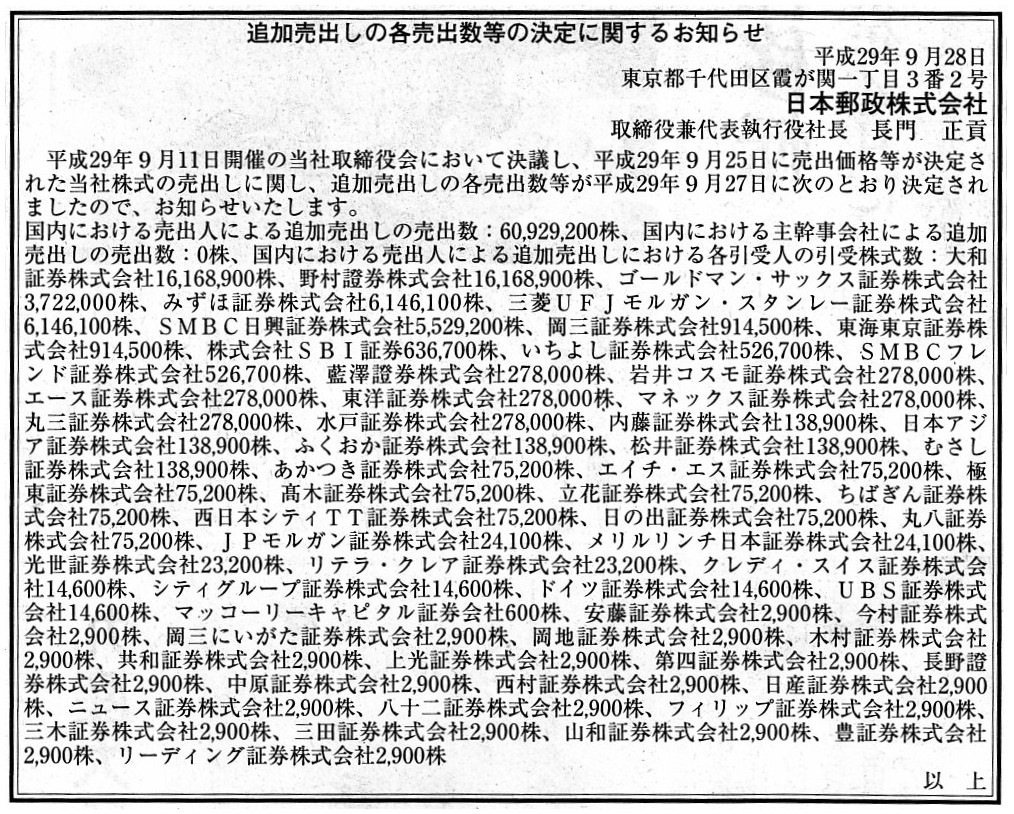 追加売出しの各売出数等の決定に関するお知らせ
平成29年９月28日
東京都千代田区霞が関一丁目３番２号
日本郵政株式会社
取締役兼代表執行役社長　長門　正貢
平成29年９月11日開催の当社取締役会において決議し、平成29年９月25日に売出価格等が決定さ
れた当社株式の売出しに関し、追加売出しの各売出数等が平成29年９月27日に次のとおり決定され
ましたので、お知らせいたします。
国内における売出人による追加売出しの売出数：60,929,200株、国内における主幹事会社による追加
売出しの売出数：0株、国内における売出人による追加売出しにおける各引受人の引受株式数：大和
証券株式会社16,168,900株、野村證券株式会社16,168,900株、ゴールドマン・サックス証券株式会社
3,722,000株、みずほ証券株式会社6,146,100株、三菱ＵＦＪモルガン・スタンレー証券株式会社
6,146,100株、ＳＭＢＣ日興証券株式会社5,529,200株、岡三証券株式会社914,500株、東海東京証券株
式会社914,500株、株式会社ＳＢＩ証券636,700株、いちよし証券株式会社526,700株、ＳＭＢＣフレ
ンド証券株式会社526,700株、藍澤證券株式会社278,000株、岩井コスモ証券株式会社278,000株、
エース証券株式会社278,000株、東洋証券株式会社278,000株、マネックス証券株式会社278,000株、
丸三証券株式会社278,000株、水戸証券株式会社278,000株、内藤証券株式会社138,900株、日本アジ
ア証券株式会社138,900株、ふくおか証券株式会社138,900株、松井証券株式会社138,900株、むさし
証券株式会社138,900株、あかつき証券株式会社75,200株、エイチ・エス証券株式会社75,200株、極
東証券株式会社75,200株、髙木証券株式会社75,200株、立花証券株式会社75,200株、ちばぎん証券株
式会社75,200株、西日本シティＴＴ証券株式会社75,200株、日の出証券株式会社75,200株、丸八証券
株式会社75,200株、ＪＰモルガン証券株式会社24,100株、メリルリンチ日本証券株式会社24,100株、
光世証券株式会社23,200株、リテラ・クレア証券株式会社23,200株、クレディ・スイス証券株式会
社14,600株、シティグループ証券株式会社14,600株、ドイツ証券株式会社14,600株、ＵＢＳ証券株式
会社14,600株、マッコーリーキャピタル証券会社600株、安藤証券株式会社2,900株、今村証券株式会
社2,900株、岡三にいがた証券株式会社2,900株、岡地証券株式会社2,900株、木村証券株式会社
2,900株、共和証券株式会社2,900株、上光証券株式会社2,900株、第四証券株式会社2,900株、長野證
券株式会社2,900株、中原証券株式会社2,900株、西村証券株式会社2,900株、日産証券株式会社2,900
株、ニュース証券株式会社2,900株、八十二証券株式会社2,900株、フィリップ証券株式会社2,900株、
三木証券株式会社2,900株、三田証券株式会社2,900株、山和証券株式会社2,900株、豊証券株式会社
2,900株、リーディング証券株式会社2,900株
以　上